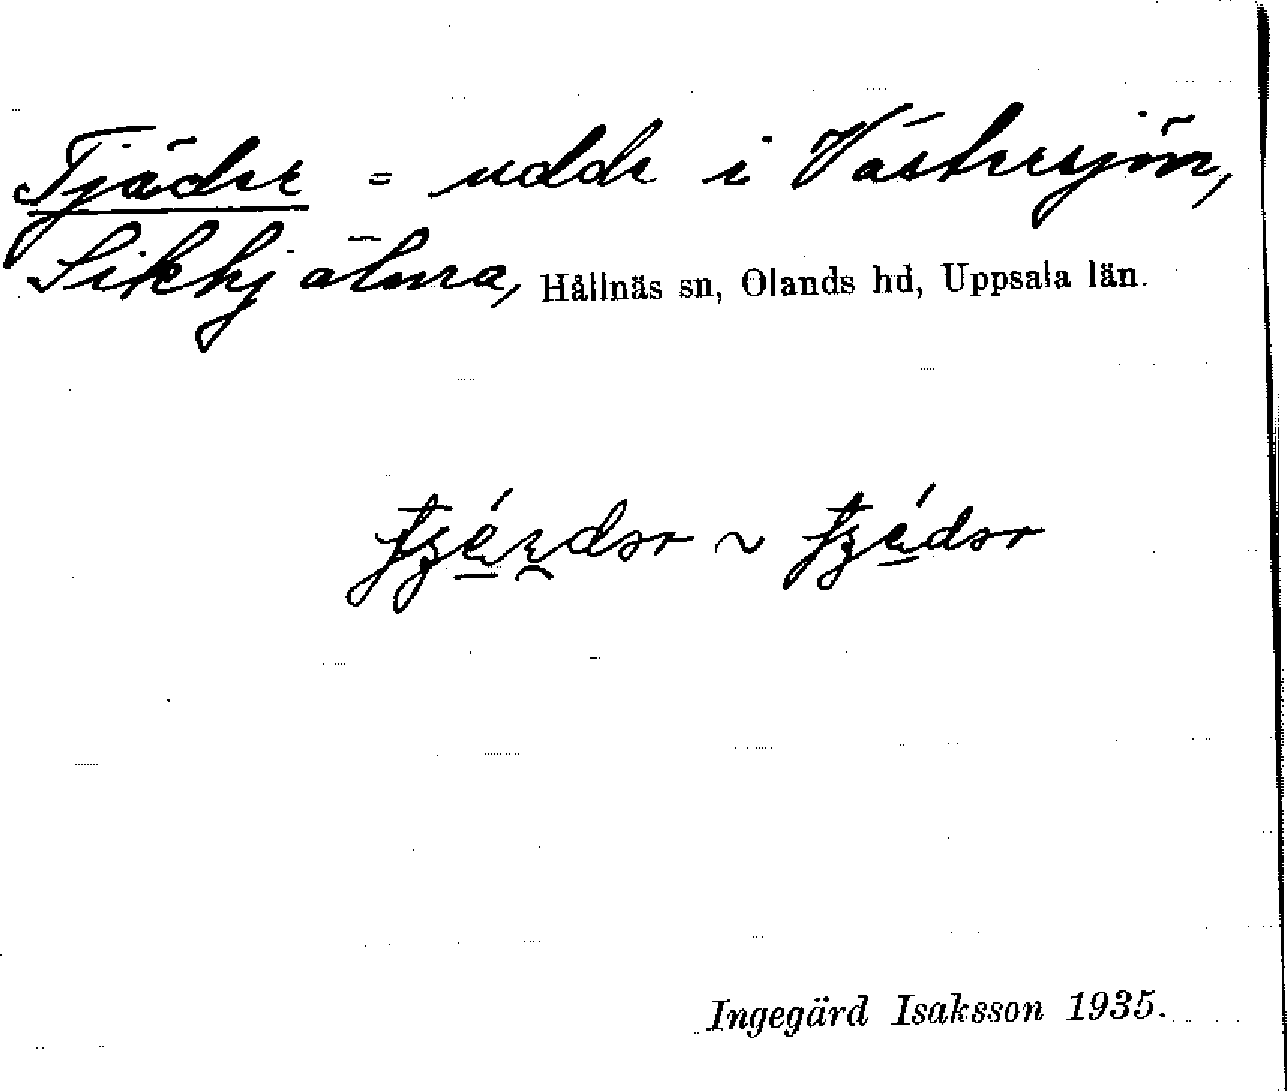 Tjädre = udde i Västersjön,
Sikhjälma, Hållnäs sn, Olands hd, Uppsala län.
Ingegärd Isaksson 1935.